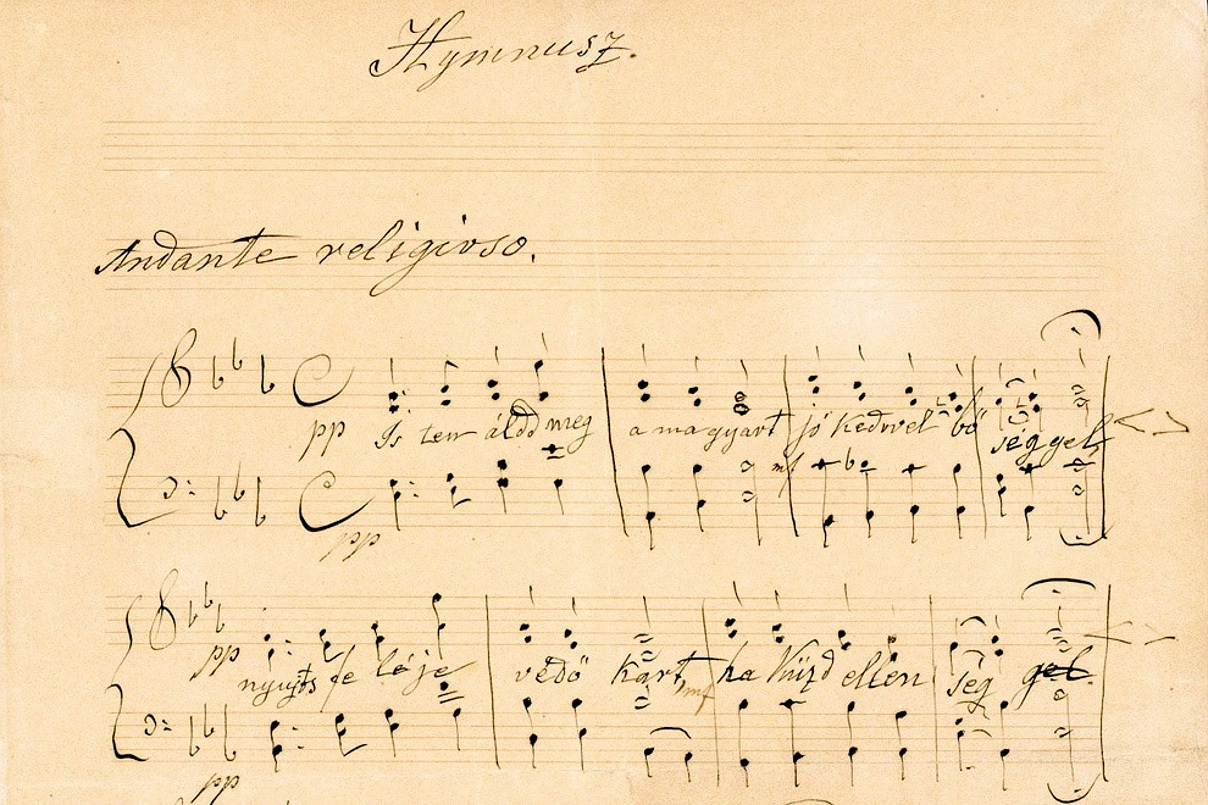 Hymnusz.
Andante religioso.
pp Is ten áldd meg a ma gyart jó kedvvel bő ség gel
mf
pp
pp nyujts fe lé je védő kart, ha küzd ellen ség gel.
mf
pp